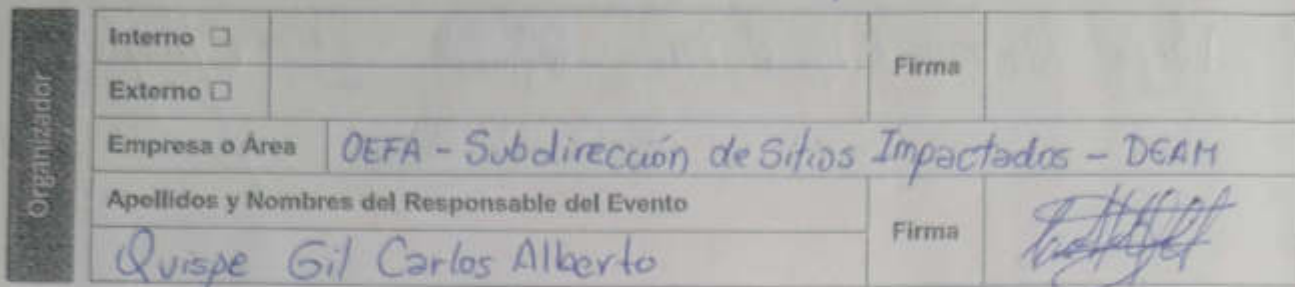 Organizador
Interno ☐
Firma
Externo ☐
Empresa o Área OEFA - Subdirección de Sitios Impactados - DEAM
Apellidos y Nombres del Responsable del Evento
Firma
Quispe Gil Carlos Alberto